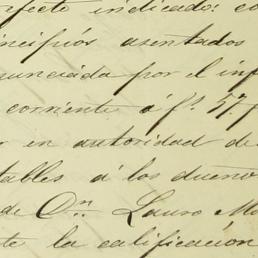 efecto indicado: co
incipios asentados
nunciada por el inf
corriente á fs. 57.
r en autoridad de
tables á los dueño
de Dn. Lauro Mo
te la calificación